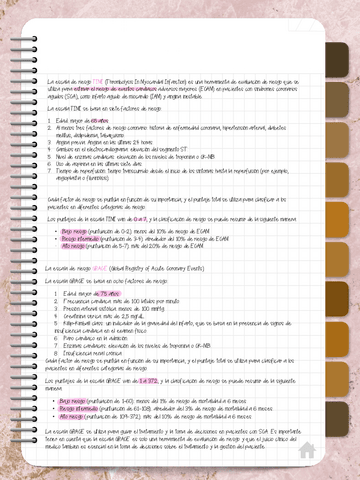 La escala de riesgo TIMI (Thrombolysis In Myocardial Infarction) es una herramienta de evaluación de riesgo que se
utiliza para estimar el riesgo de eventos cardíacos adversos mayores (ECAM) en pacientes con síndromes coronarios
agudos (SCA), como infarto agudo de miocardio (IAM) y angina inestable.
La escala TIMI se basa en siete factores de riesgo:
1. Edad mayor de 65 años
2. Al menos tres factores de riesgo coronario: historia de enfermedad coronaria, hipertensión arterial, diabetes
mellitus, dislipidemia, tabaquismo
3. Angina previa: Angina en las últimas 24 horas
4. Cambios en el electrocardiograma: elevación del segmento ST
5. Nivel de enzimas cardíacas: elevación de los niveles de troponina o CK-MB
6. Uso de aspirina en los últimos siete días
7. Tiempo de reperfusión: tiempo transcurrido desde el inicio de los síntomas hasta la reperfusión (por ejemplo,
angioplastia o fibrinólisis).
Cada factor de riesgo se puntúa en función de su importancia, y el puntaje total se utiliza para clasificar a los
pacientes en diferentes categorías de riesgo.
Los puntajes de la escala TIMI van de 0 a 7, y la clasificación de riesgo se puede resumir de la siguiente manera:
• Bajo riesgo (puntuación de 0-2): menos del 10% de riesgo de ECAM
• Riesgo intermedio (puntuación de 3-4): alrededor del 10% de riesgo de ECAM
Alto riesgo (puntuación de 5-7): más del 20% de riesgo de ECAM
La escala de riesgo GRACE (Global Registry of Acute Coronary Events)
La escala GRACE se basa en ocho factores de riesgo:
1. Edad mayor de 75 años
2. Frecuencia cardíaca: más de 100 latidos por minuto
3. Presión arterial sistólica: menos de 100 mmHg
4. Creatinina sérica: más de 2,5 mg/dL
5. Killip-Kimball class: un indicador de la gravedad del infarto, que se basa en la presencia de signos de
insuficiencia cardíaca en el examen físico
6. Paro cardíaco en la admisión
7. Enzimas cardíacas: elevación de los niveles de troponina o CK-MB
8. Insuficiencia renal crónica
Cada factor de riesgo se puntúa en función de su importancia, y el puntaje total se utiliza para clasificar a los
pacientes en diferentes categorías de riesgo.
Los puntajes de la escala GRACE van de 1 a 372, y la clasificación de riesgo se puede resumir de la siguiente
manera:
• Bajo riesgo (puntuación de 1-60): menos del 1% de riesgo de mortalidad a 6 meses
• Riesgo intermedio (puntuación de 61-108): alrededor del 3% de riesgo de mortalidad a 6 meses
• Alto riesgo (puntuación de 109-372): más del 10% de riesgo de mortalidad a 6 meses
La escala GRACE se utiliza para guiar el tratamiento y la toma de decisiones en pacientes con SCA. Es importante
tener en cuenta que la escala GRACE es solo una herramienta de evaluación de riesgo y que el juicio clínico del
médico también es esencial en la toma de decisiones sobre el tratamiento y la gestión del paciente.